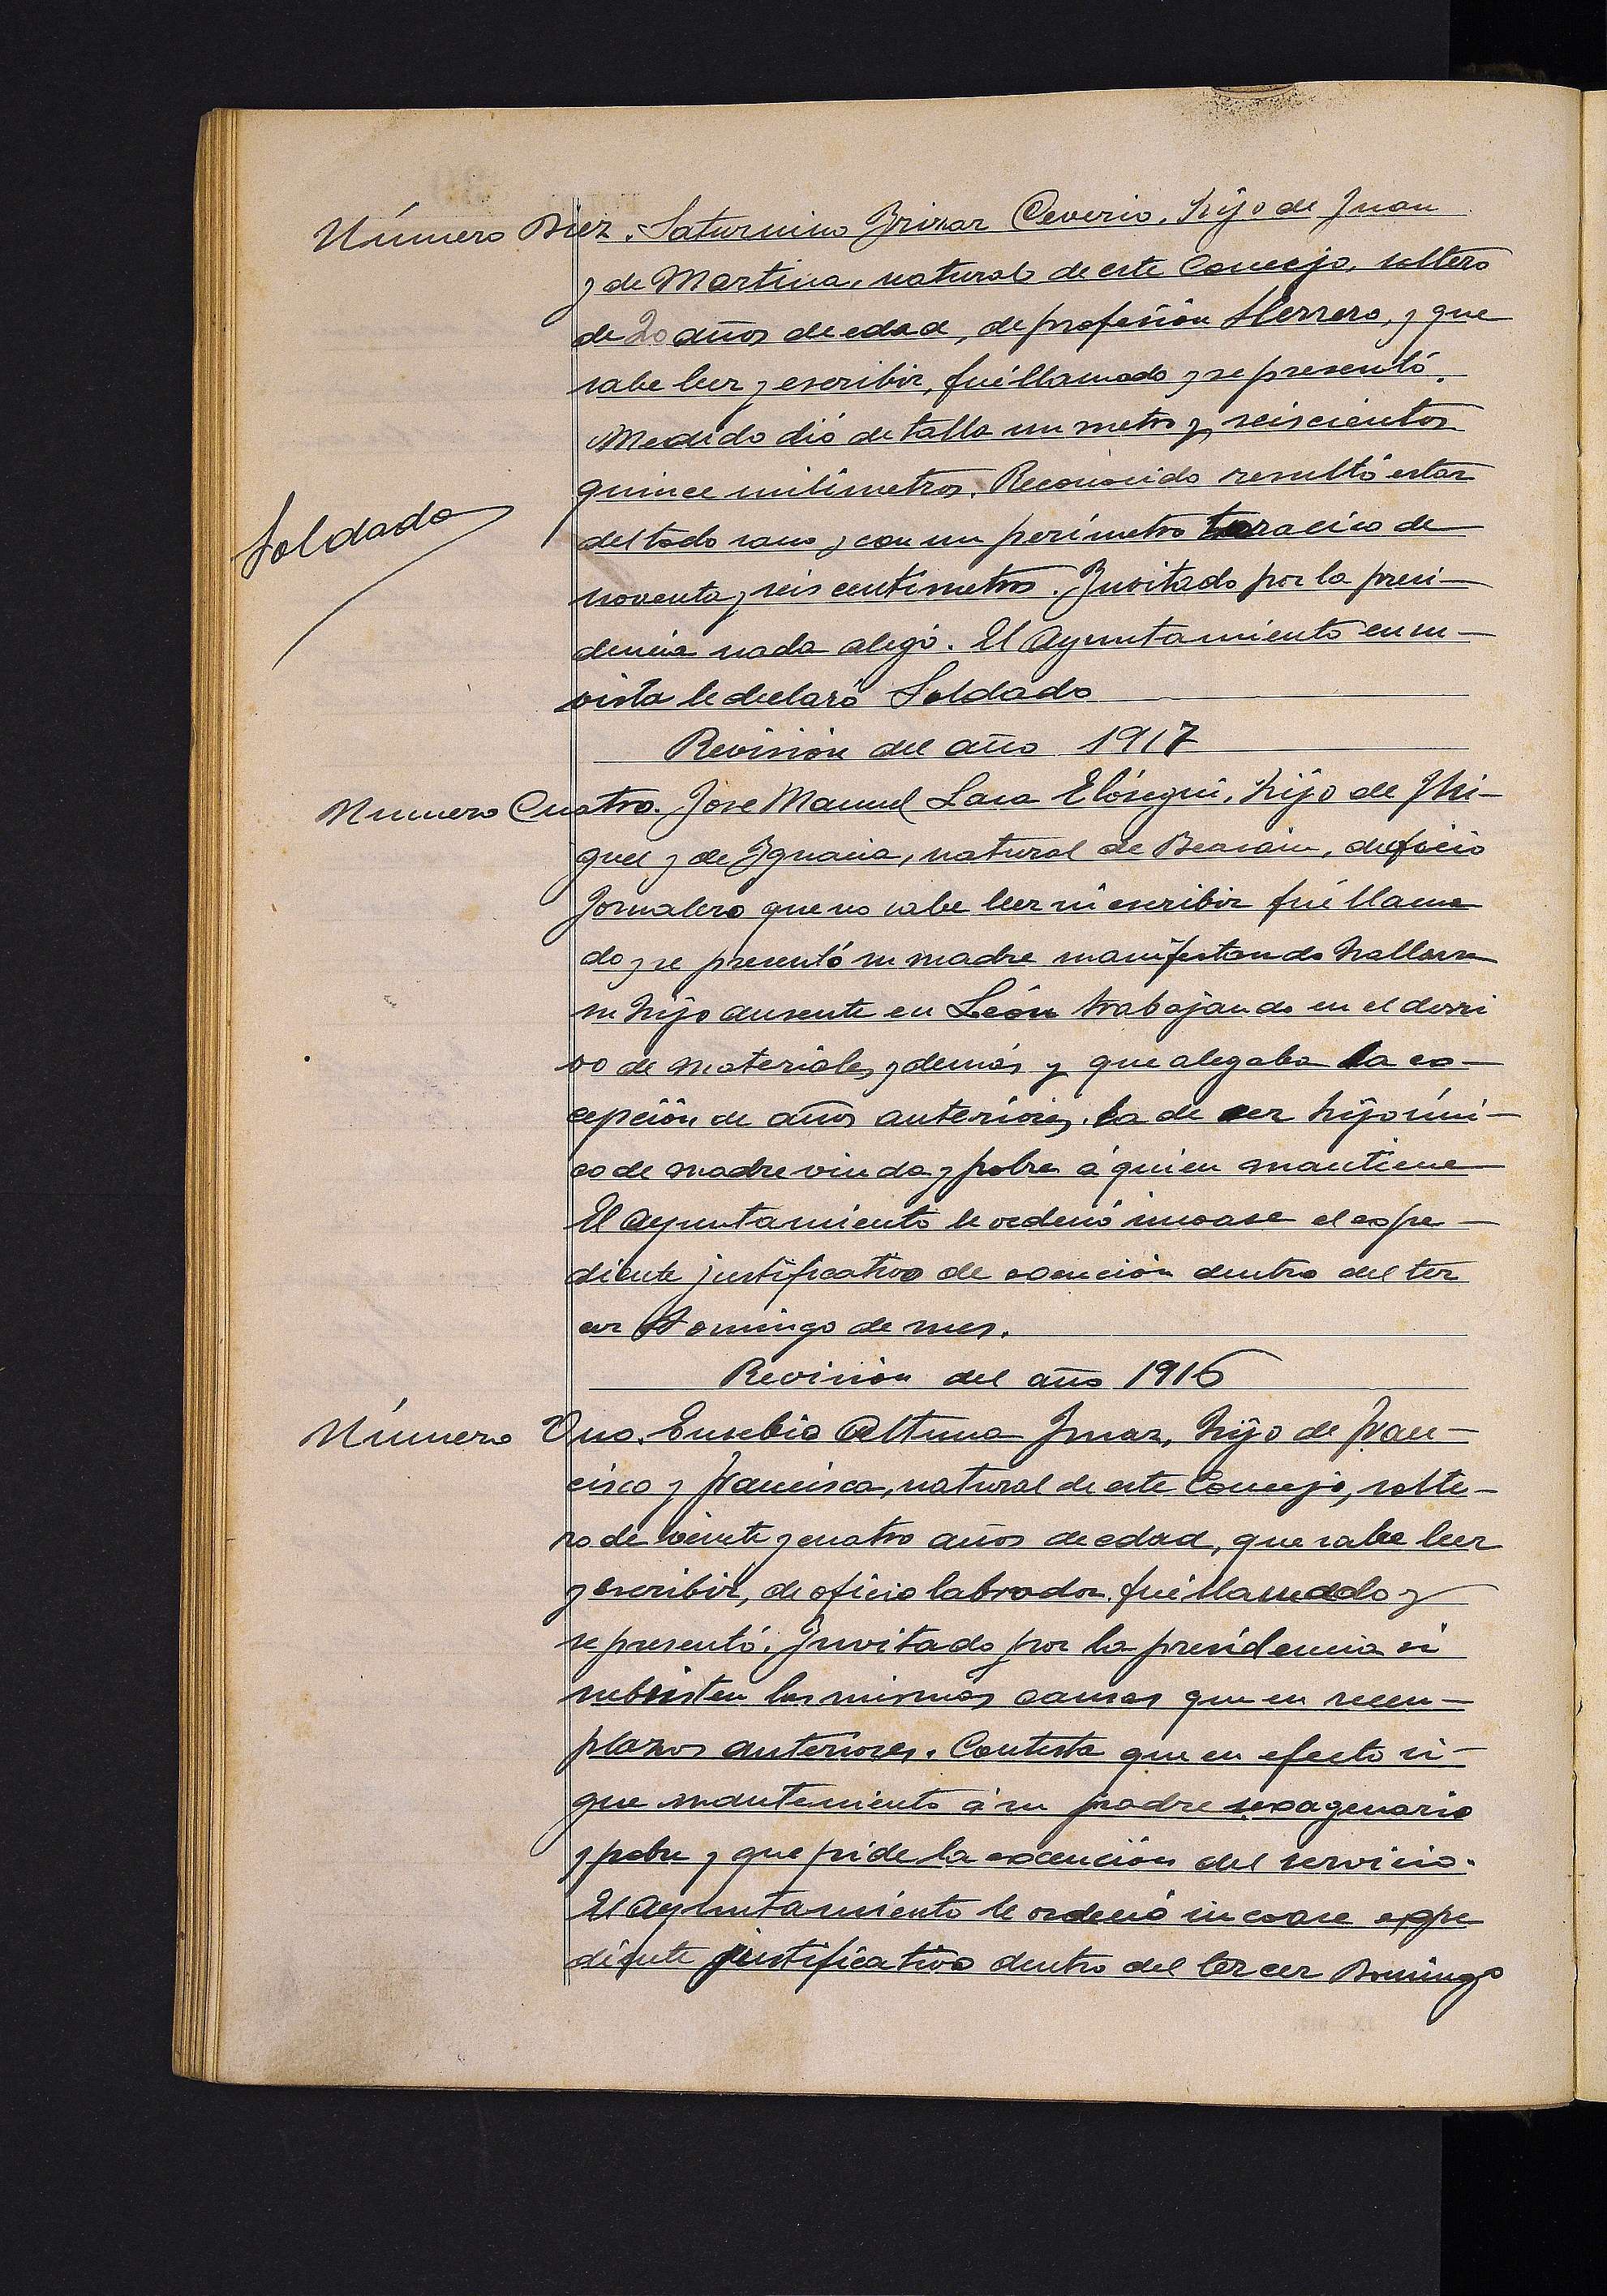 Número Diez. Saturnino Irizar Ceverio, hijo de Juan
y de Martina, natural de este Concejo, soltero
de 20 años de edad, de profesión Herrero, y que
sabe leer y escribir, fué llamado y se presentó.
Medido dió de talla un metro y seiscientos
quince milímetros. Reconocido resultó estar
Soldado
del todo sano y con un perímetro toracico de
noventa y seis centímetros. Invitado por la presi-
dencia nada alegó. El Ayuntamiento en su
vista le declaró Soldado
Revisión del año 1917
Numero Cuatro. Jose Manuel Lasa Elósegui, hijo de Mi-
guel y de Ignacia, natural de Beasain, de oficio
Jornalero que no sabe leer ni escribir fué llama
do y se presentó su madre manifestando hallarse
su hijo ausente en León trabajando en el derri
vo de materiales y demás y que alegaba la ex-
cepción de años anteriores, la de ser hijo úni-
co de madre viuda y pobre á quien mantiene
El Ayuntamiento le ordenó incoase el expe-
diente justificativo de exención dentro del ter
cer Domingo de mes.
Revisión del año 1916
Número Uno. Eusebio Altuna Imaz, hijo de Fran-
cisco y Francisca, natural de este Concejo, solte-
ro de veinte y cuatro años de edad, que sabe leer
y escribir, de oficio labrador. fué llamado y
se presentó. Invitado por la presidencia si
subsisten las mismas causas que en reem-
plazos anteriores. Contesta que en efecto si-
gue manteniento á su padre sexagenario
y pobre y que pide la excención del servicio.
El Ayuntamiento le ordenó incoase expe
diente justificativo dentro del tercer Domingo